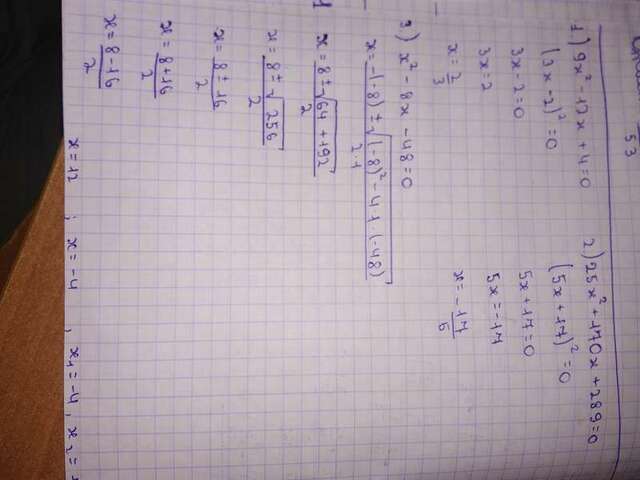 53
1) 9x² - 12x + 4 = 0
(3x - 2)² = 0
3x - 2 = 0
3x = 2
x = 2/3
2) 25x² + 170x + 289 = 0
(5x + 17)² = 0
5x + 17 = 0
5x = -17
x = -17/5
3) x² - 8x - 48 = 0
x = -(-8) ± √(-8)² - 4 1 · (-48) / 2·1
x = 8 ± √64 + 192 / 2
x = 8 ± √256 / 2
x = 8 ± 16 / 2
x = 8 + 16 / 2
x = 8 - 16 / 2
x = 12 ; x = -4 , x₁ = -4 , x₂ =